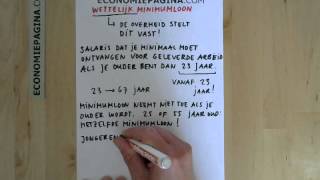 ECONOMIEPAGINA.COM
ECONOMIEPAGINA.COM
WETTELIJK MINIMUMLOON
↳ DE OVERHEID STELT
DIT VAST!
SALARIS DAT JE MINIMAAL MOET
ONTVANGEN VOOR GELEVERDE ARBEID
ALS JE OUDER BENT DAN 23 JAAR
23 → 67 JAAR
VANAF 23
JAAR!
MINIMUMLOON NEEMT NIET TOE ALS JE
OUDER WORDT. 25 OF 55 JAAR OUD:
HETZELFDE MINIMUMLOON!
JONGEREN